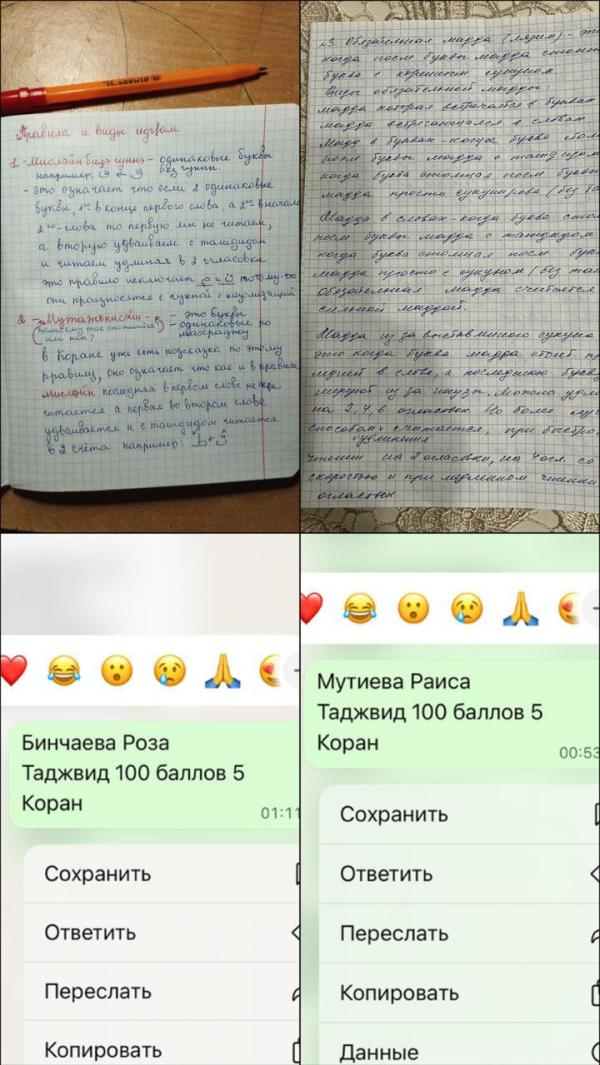 Правила и виды идгам
1 - Мислайн билэ гунна - одинаковые буквы
например: ف ← ف без гунны
- это означает что если 2 одинаковые
буквы, 1ая в конце первого слова, а 2ая в начале
2го слова то первую мы не читаем,
а вторую удваиваем с ташдидом
и читаем удлиняя в 2 огласовки
это правило исключает م и ن потому что
они произносятся с гунной с
2 - Мутажанисайн - это буквы
(почему так или нет?) - одинаковые по махраджу
в Коране уже есть подсказка по этому
правилу, оно означает что как и в правиле
мислайн последняя в первом слове не
читается а первая во втором слове
удваивается и с ташдидом читается
в 2 счёта например:
№3. Обязательная мадда (лязим) - это
когда после буквы мадда стоит
буква с коренным сукуном
Виды обязательной мадды:
мадда которая встречается в буквах
мадда встречающаяся в словах.
Мадд в буквах - когда буква
после буквы мадда с ташдидом
когда буква стоящая после буквы
мадда просто сукунирована (без
Мадда в словах - когда буква
после буквы мадда с ташдидом
когда буква стоящая после буквы
мадда просто с сукуном (без
обязательная мадда считается
сильной маддой.
Мадда из за выставленного сукуна
это когда буква мадда стоит
в слове, а последнюю букву
из за паузы. Можно
на 2, 4, 6 огласовок. Но более
способом удлинения считается, при
чтении на 2 огласовки, на 4 огл. со
скоростью и при медленном чтении
огласовок
Бинчаева Роза
Таджвид 100 баллов 5
Коран
01:11
Сохранить
Ответить
Переслать
Копировать
Мутиева Раиса
Таджвид 100 баллов 5
Коран
00:53
Сохранить
Ответить
Переслать
Копировать
Данные